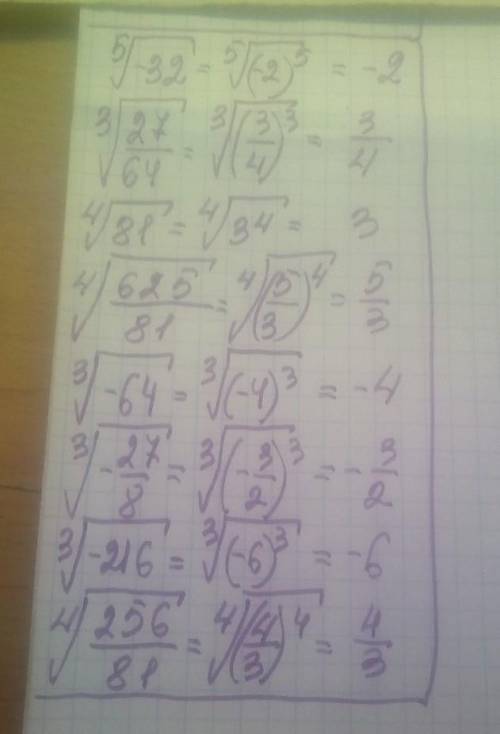 ⁵√-32 = ⁵√(-2)⁵ = -2
³√27/64 = ³√(3/4)³ = 3/4
⁴√81 = ⁴√3⁴ = 3
⁴√625/81 = ⁴√(5/3)⁴ = 5/3
³√-64 = ³√(-4)³ = -4
³√-27/8 = ³√(-3/2)³ = -3/2
³√-216 = ³√(-6)³ = -6
⁴√256/81 = ⁴√(4/3)⁴ = 4/3